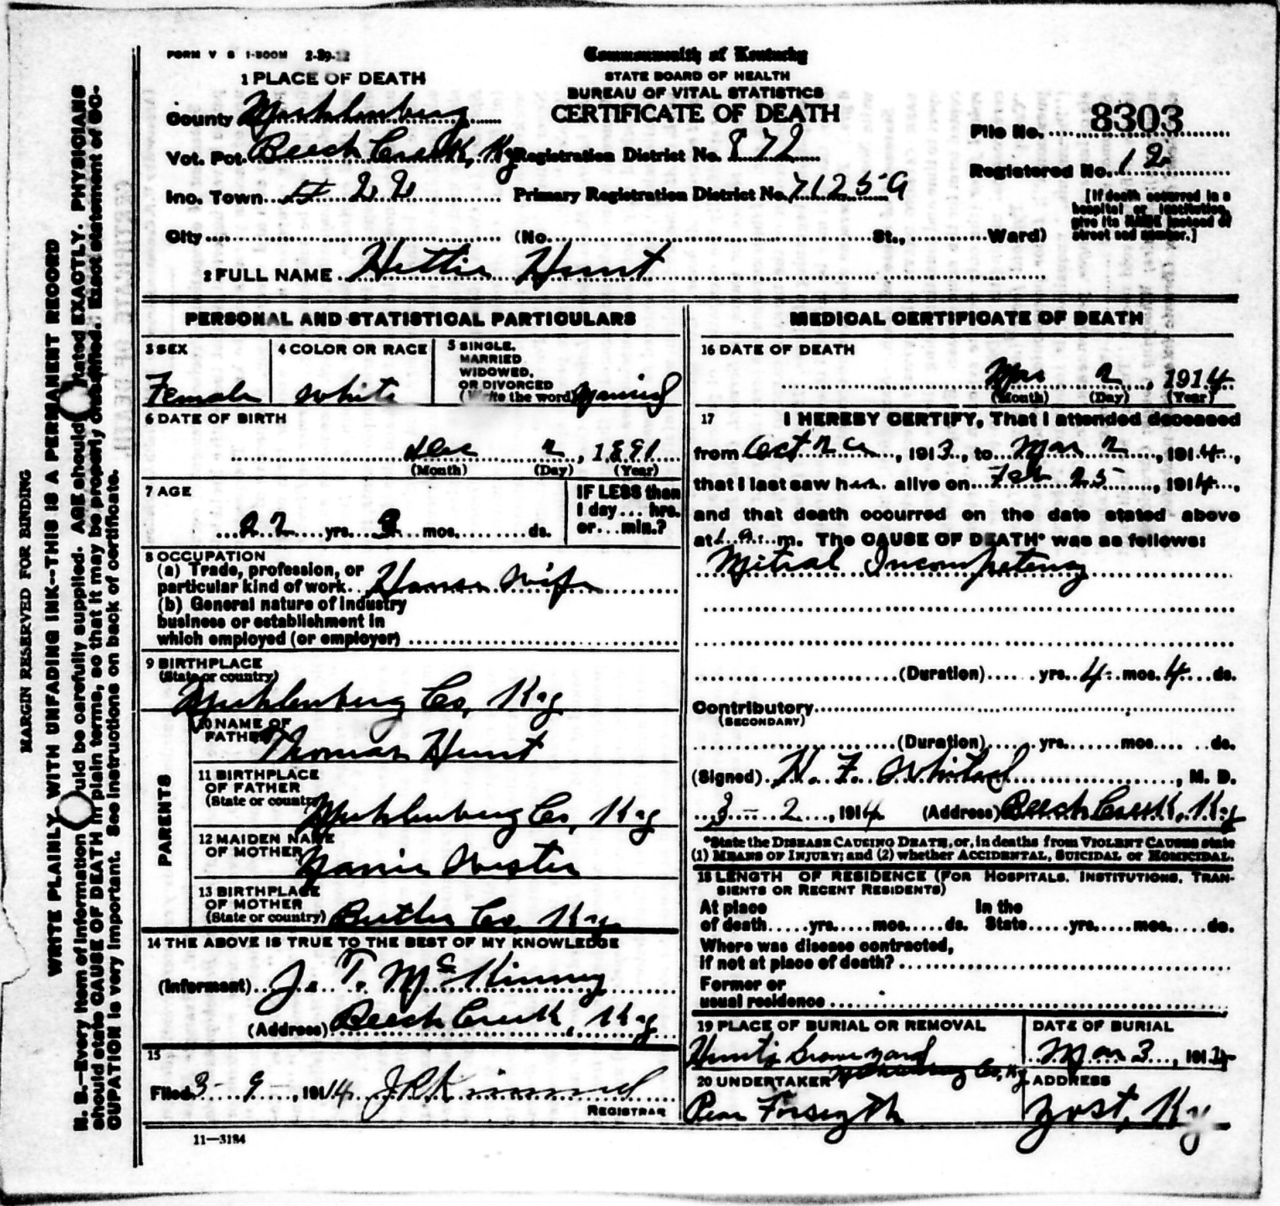 FORM V S 1-300M 2-29-12
Commonwealth of Kentucky
STATE BOARD OF HEALTH
BUREAU OF VITAL STATISTICS
CERTIFICATE OF DEATH
1 PLACE OF DEATH
County Muhlenburg
Vot. Pct. Beech Creek, Ky
Registration District No. 872
Inc. Town
Primary Registration District No. 7125
City (No. St., Ward)
File No. 8303
Registered No. 12
[If death occurred in a hospital or institution, give its NAME instead of street and number.]
2 FULL NAME Hettie Hunt
PERSONAL AND STATISTICAL PARTICULARS
3 SEX
Female
4 COLOR OR RACE
White
5 SINGLE, MARRIED WIDOWED, OR DIVORCED
(Write the word) Married
6 DATE OF BIRTH
Dec 2, 1891
(Month) (Day) (Year)
7 AGE
22 yrs. 3 mos. ds.
IF LESS than 1 day... hrs. or... min.?
8 OCCUPATION
(a) Trade, profession, or
particular kind of work House Wife
(b) General nature of industry
business or establishment in
which employed (or employer)
9 BIRTHPLACE
(State or country)
Muhlenburg Co, Ky
PARENTS
10 NAME OF FATHER
Thomas Hunt
11 BIRTHPLACE
OF FATHER
(State or country) Muhlenburg Co, Ky
12 MAIDEN NAME
OF MOTHER
13 BIRTHPLACE
OF MOTHER
(State or country) Butler Co, Ky
14 THE ABOVE IS TRUE TO THE BEST OF MY KNOWLEDGE
(Informant) J. T. McKinney
(Address) Beech Creek, Ky
15
Filed 3-9, 1914
REGISTRAR
11—3184
MEDICAL CERTIFICATE OF DEATH
16 DATE OF DEATH
Mar 2, 1914
(Month) (Day) (Year)
17 I HEREBY CERTIFY, That I attended deceased
from Oct, 1913, to Mar 2, 1914,
that I last saw her alive on Feb 25, 1914,
and that death occurred on the date stated above
at 1 a.m. The CAUSE OF DEATH* was as follows:
Mitral Incompetency
(Duration) yrs. 4 mos. 4 ds.
Contributory
(SECONDARY)
(Duration) yrs. mos. ds.
(Signed) , M. D.
3-2, 1914 (Address) Beech Creek, Ky
*State the DISEASE CAUSING DEATH, or, in deaths from VIOLENT CAUSES state
(1) MEANS OF INJURY; and (2) whether ACCIDENTAL, SUICIDAL or HOMICIDAL.
18 LENGTH OF RESIDENCE (FOR HOSPITALS, INSTITUTIONS, TRAN-
SIENTS OR RECENT RESIDENTS)
At place of death yrs. mos. ds. In the State yrs. mos. ds.
Where was disease contracted,
if not at place of death?
Former or
usual residence
19 PLACE OF BURIAL OR REMOVAL
Hunt's Graveyard
Co, Ky
DATE OF BURIAL
Mar 3, 1914
20 UNDERTAKER
Forsyth
ADDRESS
Yost, Ky
MARGIN RESERVED FOR BINDING
WRITE PLAINLY, WITH UNFADING INK—THIS IS A PERMANENT RECORD
N. B.—Every item of information should be carefully supplied. AGE should be stated EXACTLY. PHYSICIANS
should state CAUSE OF DEATH in plain terms, so that it may be properly classified. Exact statement of OC-
CUPATION is very important. See instructions on back of certificate.